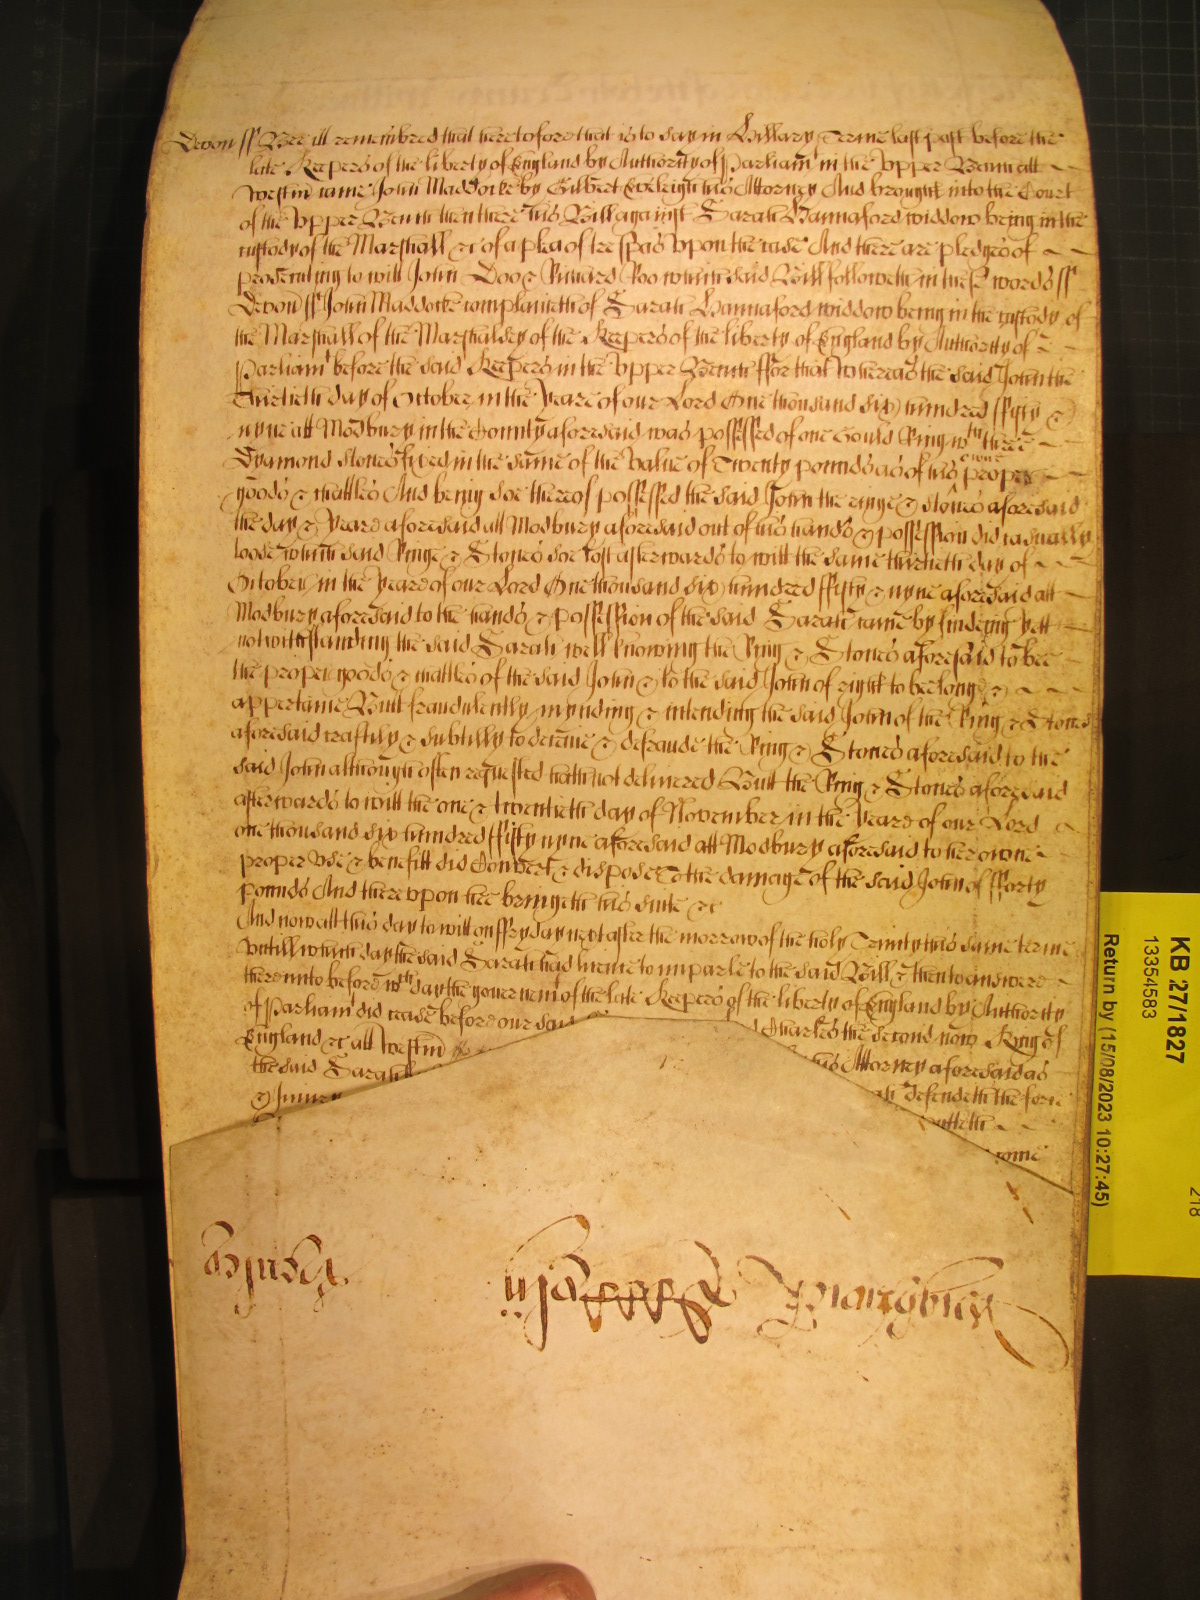 Devon ss Bee itt remembred that heretofore that is to say in Hillary Terme last past before the
late Keepers of the liberty of England by Authority of Parliam^t in the Upper Bench att
Westm̄ came John Maddocke by Gilbert Eveleigh his Attorney And brought into the Court
of the Upper Bench then there his Bill against Sarah Hannaford widdow being in the
custody of the Marshall &c of a plea of trespas upon the case And there are pledges of
prosecuting to witt John Doo & Richard Roo which said Bill followeth in these words ss
Devon ss John Maddocke complaineth of Sarah Hannaford widdow being in the custody of
the Marshall of the Marshalsey of the Keepers of the liberty of England by Authority of
Parliam^t before the said Keepers in the Upper Bench ffor that Whereas the said John the
Thirtieth day of October in the yeare of our Lord One thousand six hundred ffifty &
nyne att Modbury in the County aforesaid was possessed of one Gould Ring w^th three
Dyamond stones fixed in the same of the value of Twenty pounds as of his owne proper
goods & chattles And being soe thereof possessed the said John the ringe & stones aforesaid
the day & yeare aforesaid att Modbury aforesaid out of his hands & possession did casually
loose which said Ringe & Stones soe lost afterwards to witt the same thirtieth day of
October in the yeare of our Lord One thousand six hundred ffifty & nyne aforesaid att
Modbury aforesaid to the hands & possession of the said Sarah came by findeing yett
notwithstanding the said Sarah well knowing the Ring & Stones aforesaid to bee
the proper goods & chattles of the said John & to the said John of right to belong &
appertaine Butt fraudulently mynding & intending the said John of the Ring & Stones
aforesaid craftily & subtilly to deceive & defraude the Ring & Stones aforesaid to the
said John although often requested hath not delivered Butt the Ring & Stones aforesaid
afterwards to witt the one & twentieth day of November in the yeare of our Lord
one thousand six hundred ffifty nyne aforesaid att Modbury aforesaid to her owne
proper use & benefitt did Convert & dispose To the damage of the said John of fforty
pounds And thereupon hee bringeth his suite &c
And now att this day to witt on ffryday next after the morrow of the holy Trinity this same terme
untill which day the said Sarah had licence to imparle to the said Bill & then to answere
thereunto before w^ch day the governem^t of the late Keepers of the liberty of England by Authority
of Parliam^t did cease before our said Charles the second now King of
England &c att Westm̄ his Attorney aforesaid as
the said Sarah defendeth the force
& Injury
come